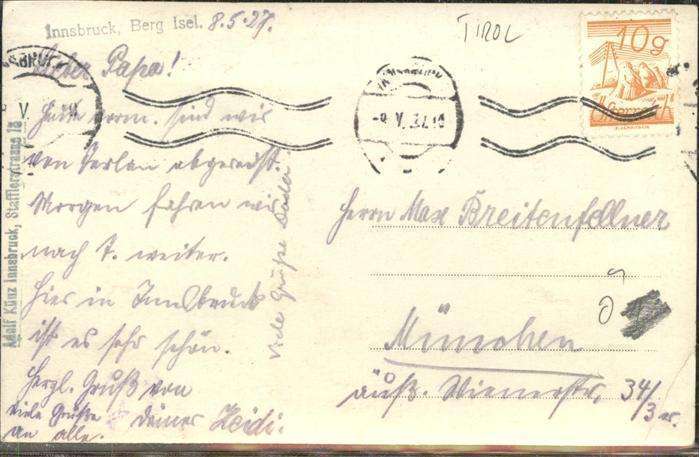 Innsbruck, Berg Isel. 8.5.27.
TIROL
10g
Lieber Papa!
Heute vorm. sind wir
von Terlan abgereist.
Morgen fahren wir
nach T. weiter.
Hier in Innsbruck
ist es sehr schön.
Herzl. Gruß von
Deiner Heidi.
viele Grüße
an alle.
Viele Grüße
Adolf Künz Innsbruck, Stafflerstrasse 18
INNSBRUCK
-8.V.27.
Herrn Max Breitenfellner
München
äuß. Wienerstr. 34/3 r.